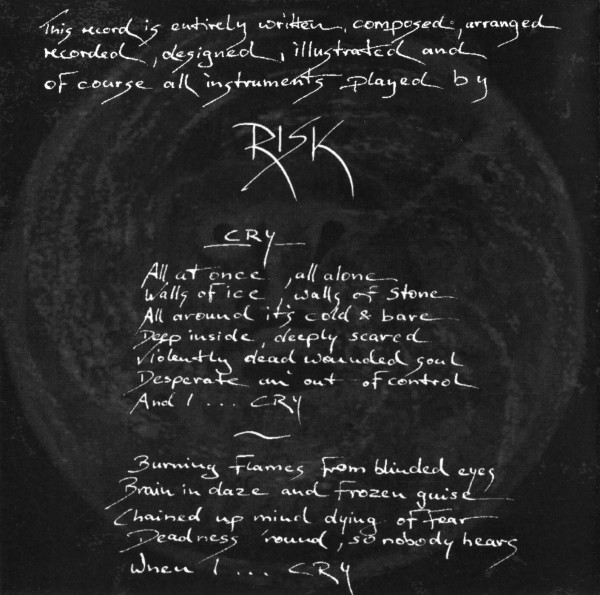 This record is entirely written, composed, arranged
recorded, designed, illustrated and
of course all instruments played by
RISK
CRY
All at once, all alone
Walls of ice, walls of stone
All around it's cold & bare
Deep inside, deeply scared
Violently dead wounded soul
Desperate an' out of control
And I ... CRY
Burning flames from blinded eyes
Brain in daze and frozen guise
Chained up mind dying of fear
Deadness 'round, so nobody hears
When I ... CRY